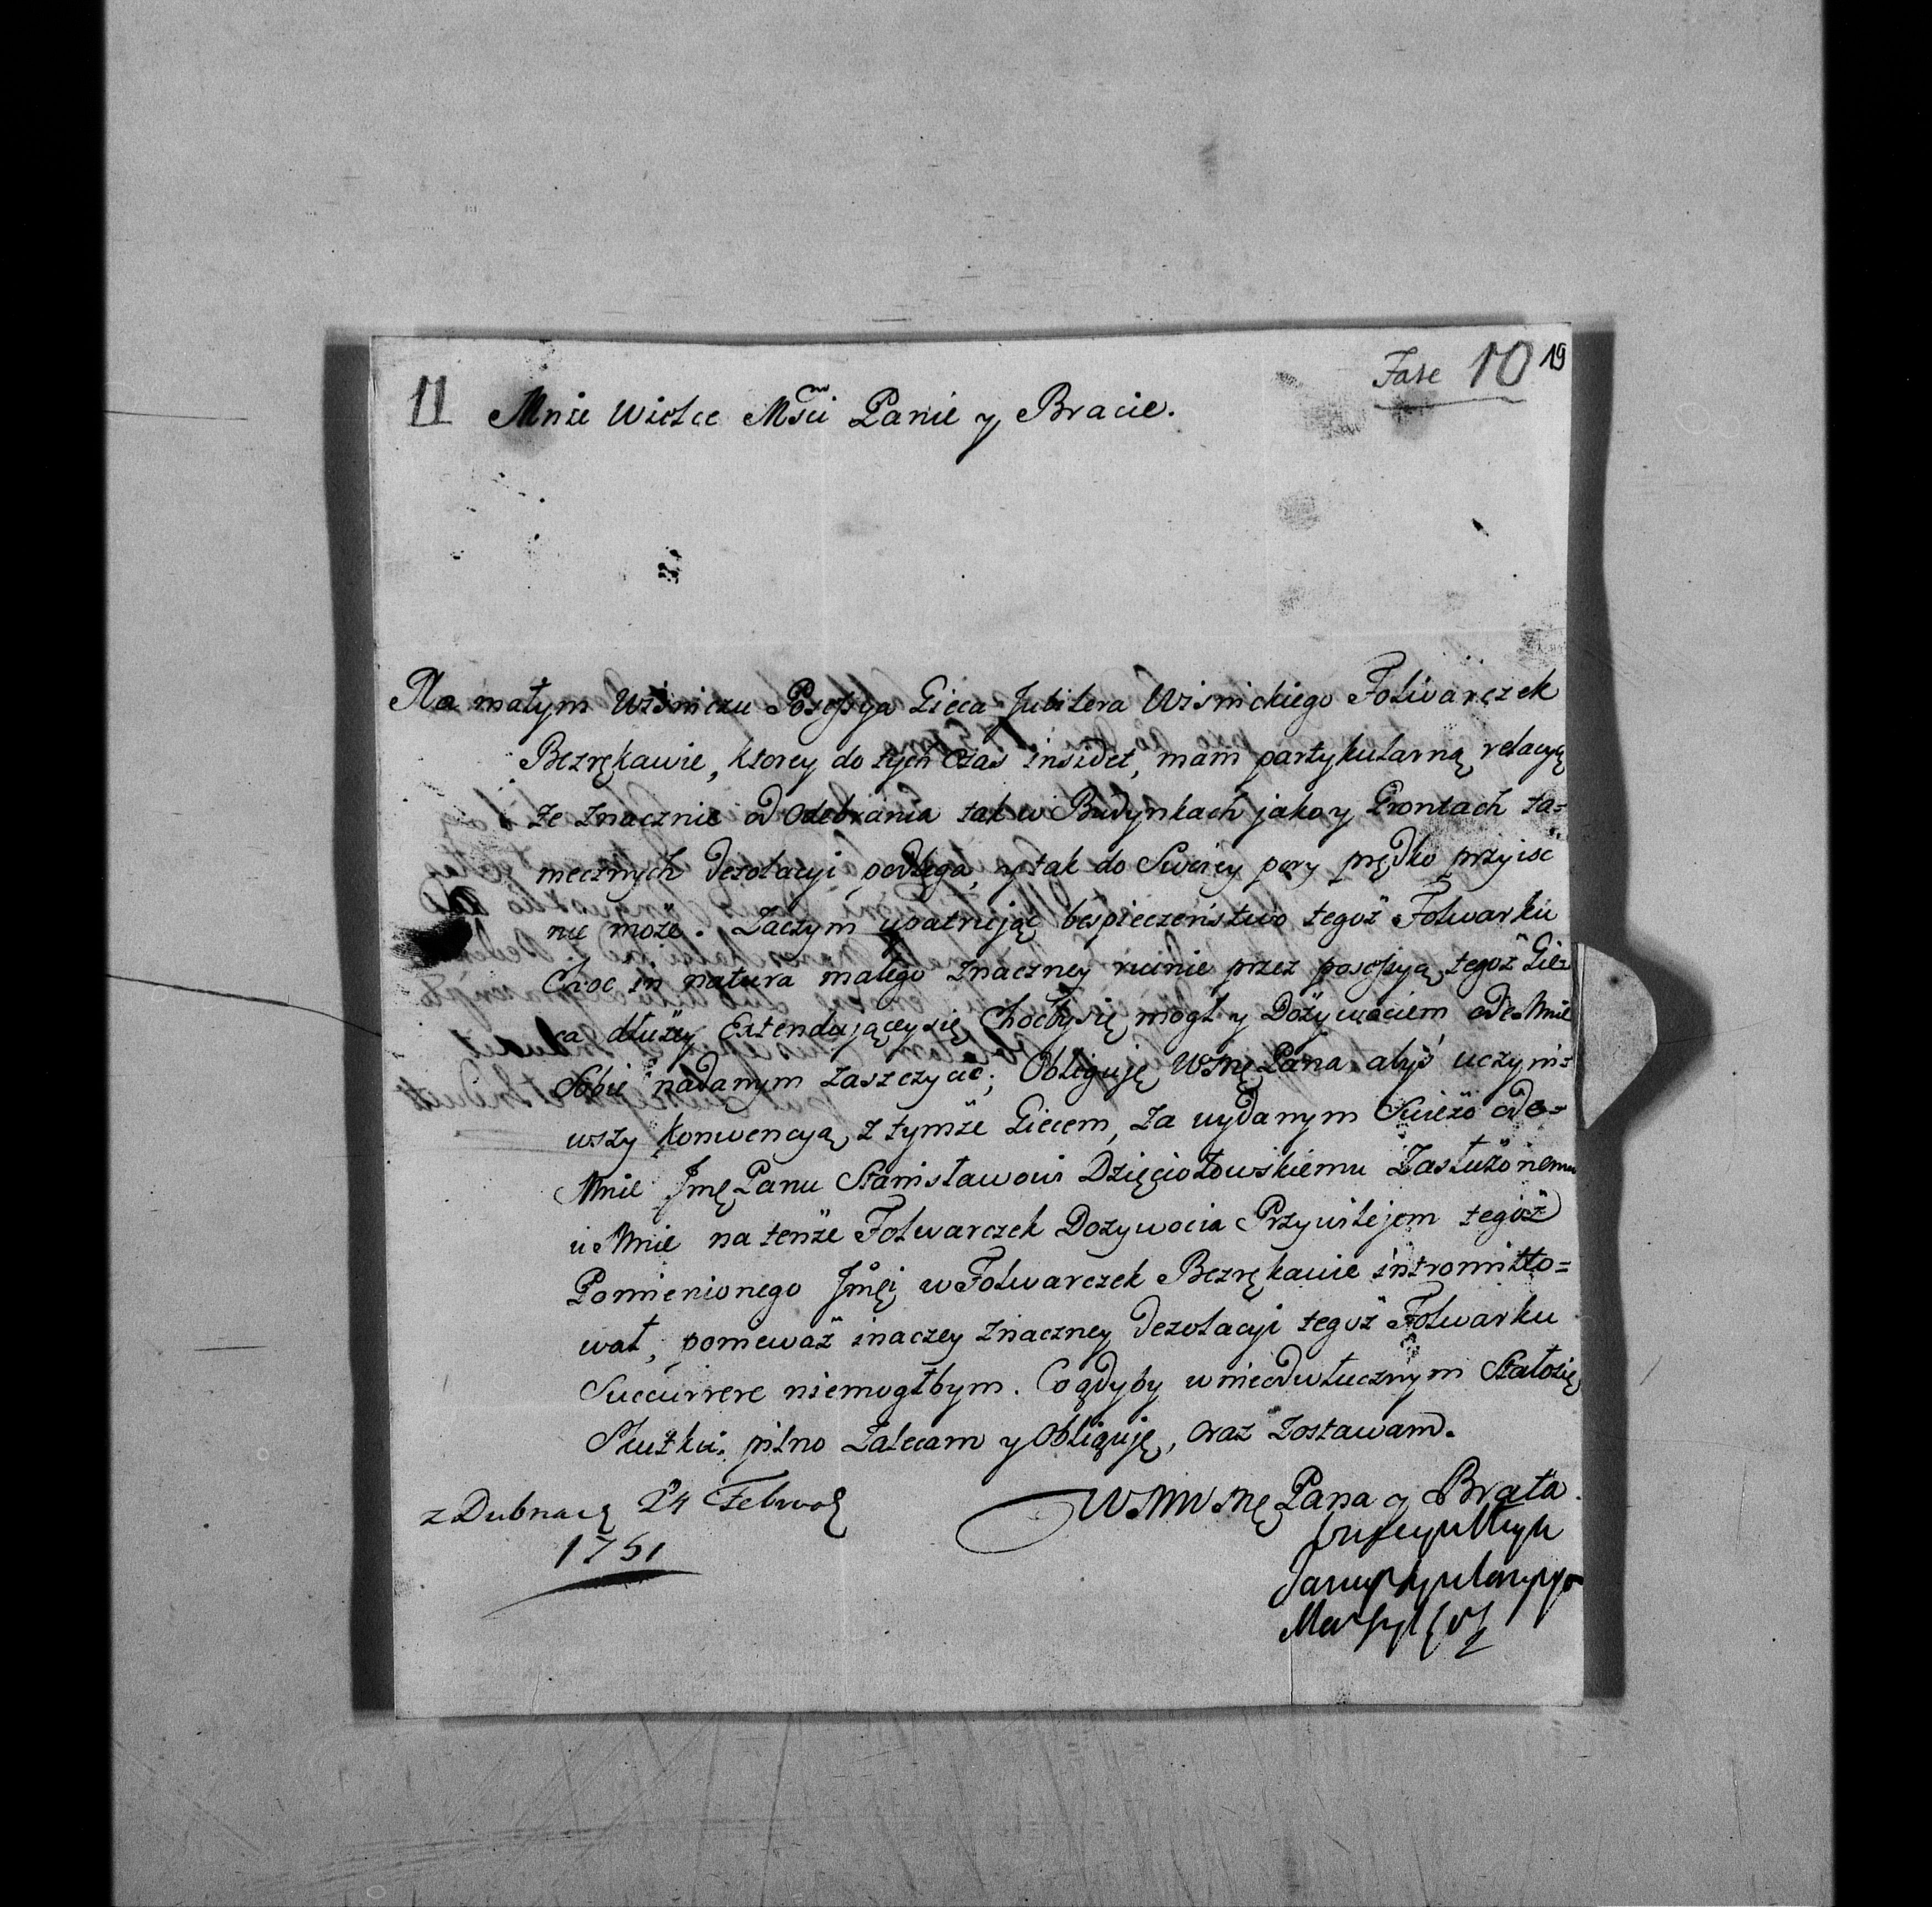 Fasc 10 19
11 Mnie Wielce Mści Panie y Bracie.
Na małym Wiśniczu Possessya Gieca Jubilera Wisnickiego Folwarczek
Bezrękawie, ktorey do tych czas insidet, mam partykularną relacyę
że znacznie od Odebrania tak w Budynkach jako y Grontach ta=
mecznych dezolacyi podlega, y tak do Swoiey pory prędko przyisc
nie może. Zaczym upatrując bespieczeństwo tegoż Folwarku
Choc in natura małego znaczney ruinie przez possessyą tegoż Gie=
ca dłużey Extendującey się, Chocby się mogł y Dożywociem ode Mnie
Sobie nadanym zaszczycac; Obliguję WMę Pana abyś uczyni=
wszy konwencyą z tymże Giecem, za wydanym Swieżo ode=
Mnie Jmę Panu Stanisławowi Dzięciołowskiemu Zasłużonemu
u Mnie na tenże Folwarczek Dozywocia Przywilejem tegoż
Pomienionego Jmęi w Folwarczek Bezrękawie intromitto=
wał, ponieważ inaczey znaczney dezolacyi tegoż Folwarku
Succurrere niemogłbym. Co gdyby w nieodwłucznym Stało się
Skutku. pilno Zalecam y Obliguję, oraz Zostawam.
z Dubna 24 Febr
1751
WMWMę Pana y Brata